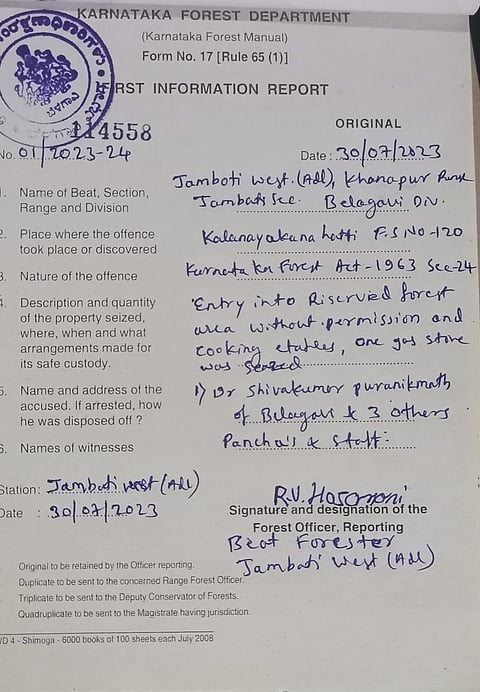 KARNATAKA FOREST DEPARTMENT
(Karnataka Forest Manual)
Form No. 17 [Rule 65 (1)]
RST INFORMATION REPORT
ORIGINAL
114558
No. 01/2023-24
Date : 30/07/2023
1. Name of Beat, Section, Range and Division
Jamboti west (Adl), Khanapur
Jamboti Sec. Belagavi Div.
2. Place where the offence took place or discovered
Kalanayakana hatti F.S NO-120
3. Nature of the offence
Karnataka Forest Act-1963 Sec-24
4. Description and quantity of the property seized, where, when and what arrangements made for its safe custody.
Entry into Riserved forest
area without permission and
cooking etables, one gas stove
was seazed
5. Name and address of the accused. If arrested, how he was disposed off ?
1) Dr Shivakumar puranikmath
of Belagavi & 3 others
6. Names of witnesses
Pancha's & Staff:
Station: Jamboti west (Adl)
Date : 30/07/2023
R.V. Hosamani
Signature and designation of the
Forest Officer, Reporting
Beat Forester
Jamboti West (Adl)
Original to be retained by the Officer reporting.
Duplicate to be sent to the concerned Range Forest Officer.
Triplicate to be sent to the Deputy Conservator of Forests.
Quadruplicate to be sent to the Magistrate having jurisdiction.
WD 4 - Shimoga - 6000 books of 100 sheets each July 2008